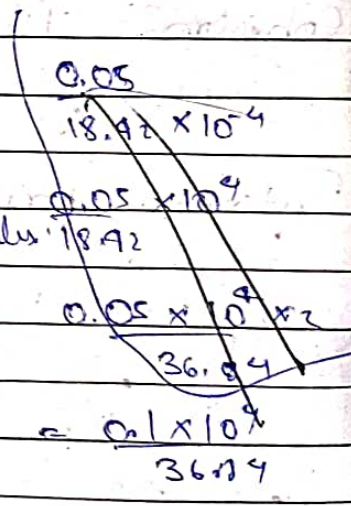 0.05
18.42 × 10-4
0.05 × 104
18.42
0.05 × 104 × 2
36.84
= 0.1 × 104
36.84